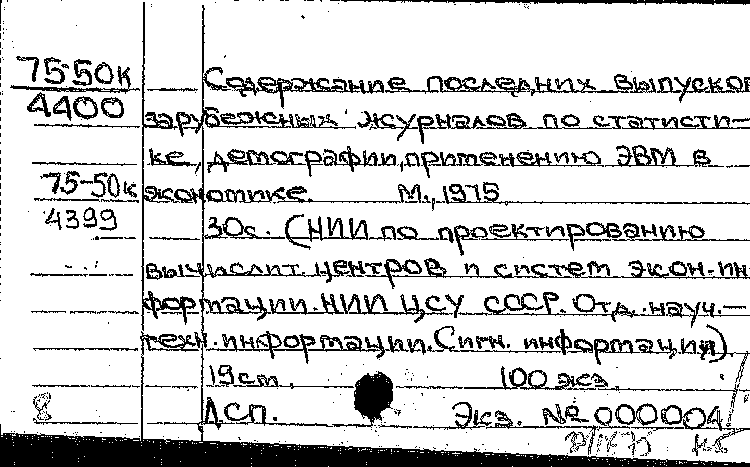 75-50к
4400
Содержание последних выпусков
зарубежных журналов по статисти-
ке, демографии, применению ЭВМ в
75-50к
4399
экономике. М., 1975.
30с. (НИИ по проектированию
вычислит. центров и систем экон. ин-
формации. НИИ ЦСУ СССР. Отд. науч.-
техн. информации. Сигн. информация).
19см. 100 экз.
8
ДСП. Экз. № 000004